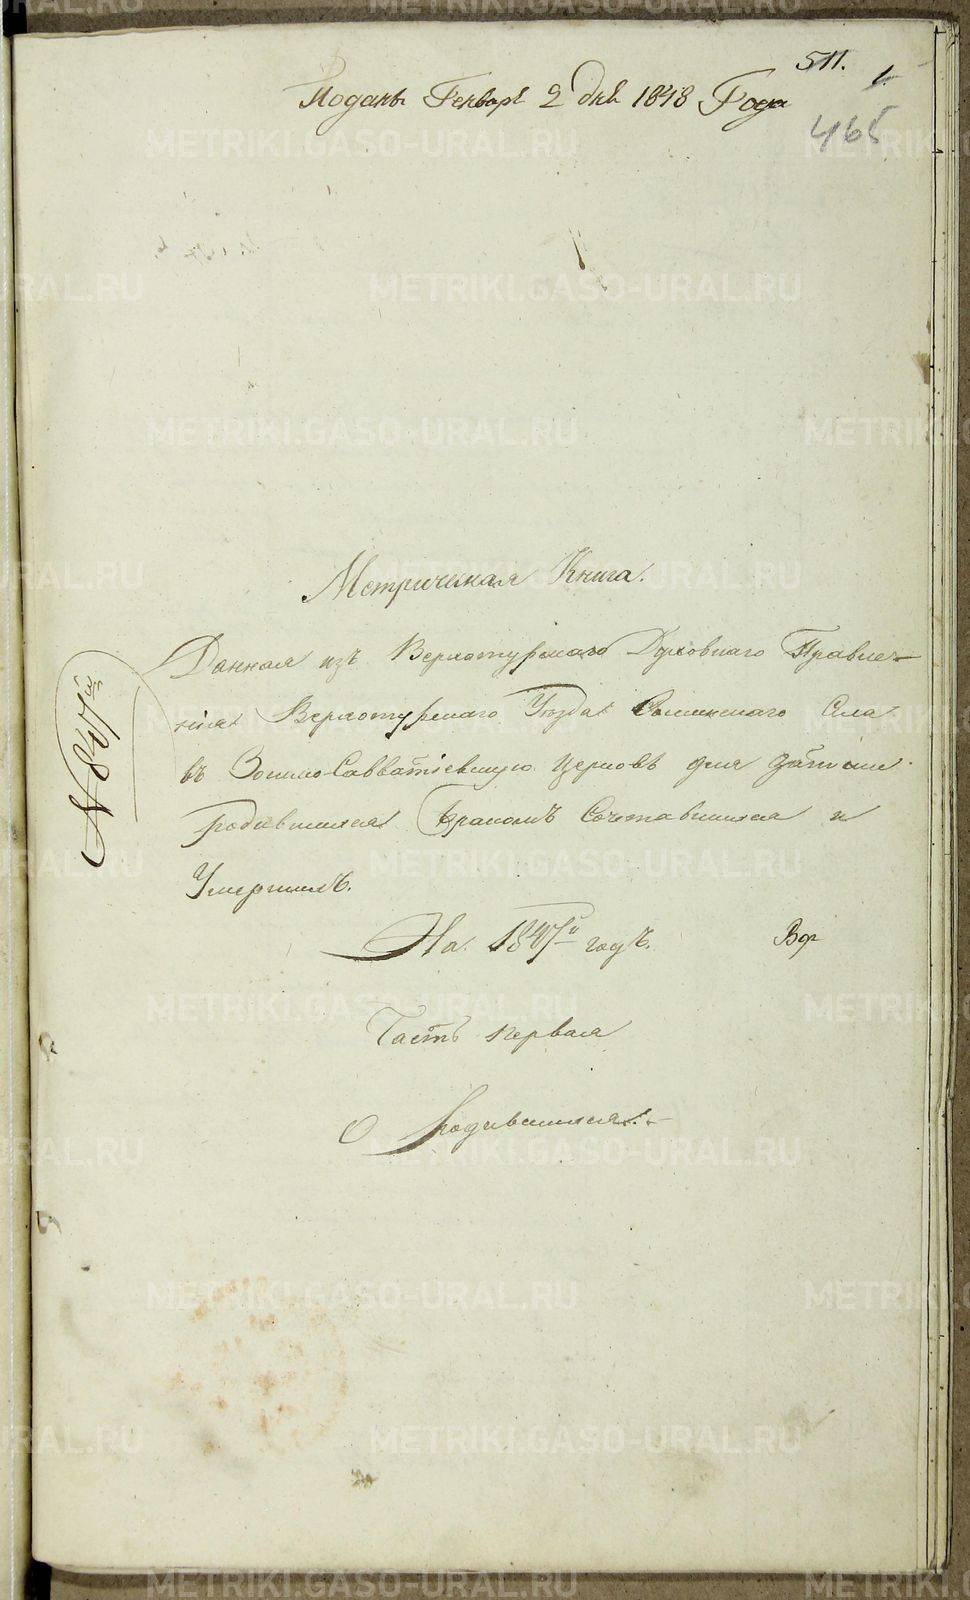 511.
1.
Поданъ Генваря 2 дня 1848 Года
465
Метрическая Книга.
Данная изъ Верхотурскаго Духовнаго Правле-
нія Верхотурскаго Уѣзда Салдинскаго Села
въ Зосимо Савватіевскую церковь для записи
родившихся бракомъ Сочетавшихся и
Умершихъ.
На 1847й годъ.
Вφ
Часть первая
О родившихся.
№ 847й
METRIKI.GASO-URAL.RU